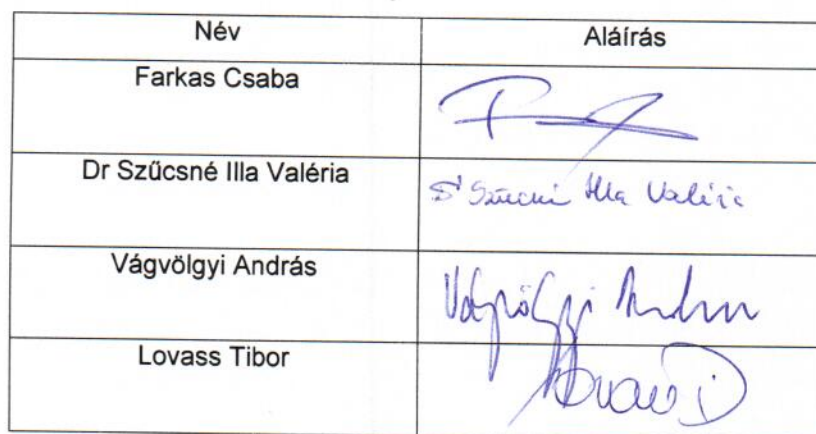 Név Aláírás
Farkas Csaba
Dr Szűcsné Illa Valéria Dr Szűcsné Illa Valéria
Vágvölgyi András Vágvölgyi András
Lovass Tibor